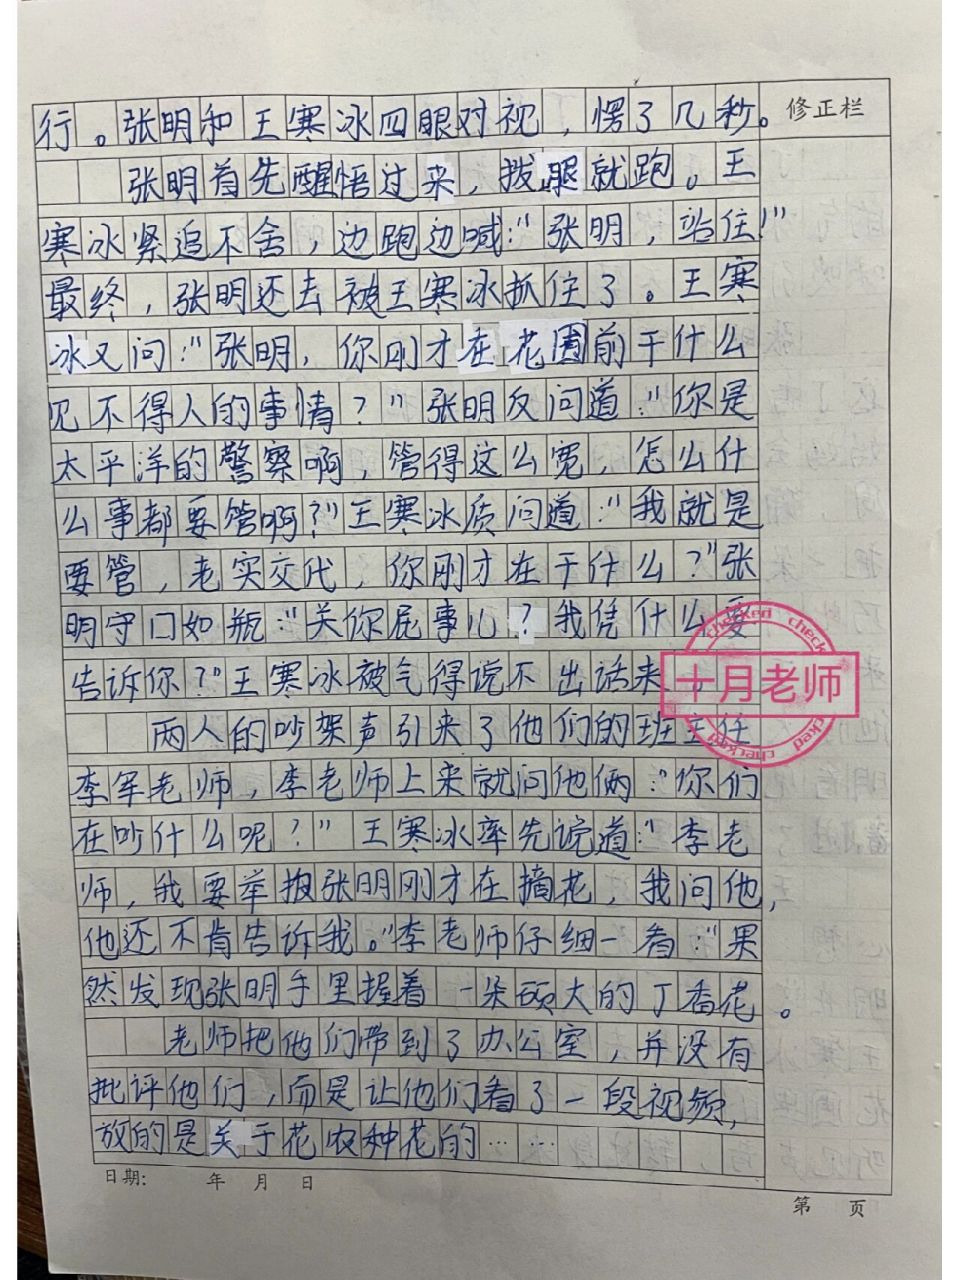 行。张明和王寒冰四眼对视，愣了几秒。
修正栏
张明首先醒悟过来，拨腿就跑。王
寒冰紧追不舍，边跑边喊："张明，站住！"
最终，张明还去被王寒冰抓住了。王寒
冰又问："张明，你刚才在花圃前干什么
见不得人的事情？"张明反问道："你是
太平洋的警察啊，管得这么宽，怎么什
么事都要管啊？"王寒冰质问道："我就是
要管，老实交代，你刚才在干什么？"张
明守口如瓶："关你屁事儿？我凭什么要
告诉你？"王寒冰被气得说不出话来。
checked check
十月老师
checked
两人的吵架声引来了他们的班主任
李军老师，李老师上来就问他俩："你们
在吵什么呢？"王寒冰率先说道："李老
师，我要举报张明刚才在摘花，我问他，
他还不肯告诉我。"李老师仔细一看："果
然发现张明手里握着一朵硕大的丁香花。
老师把他们带到了办公室，并没有
批评他们，而是让他们看了一段视频，
放的是关于花农种花的……
日期： 年 月 日
第 页